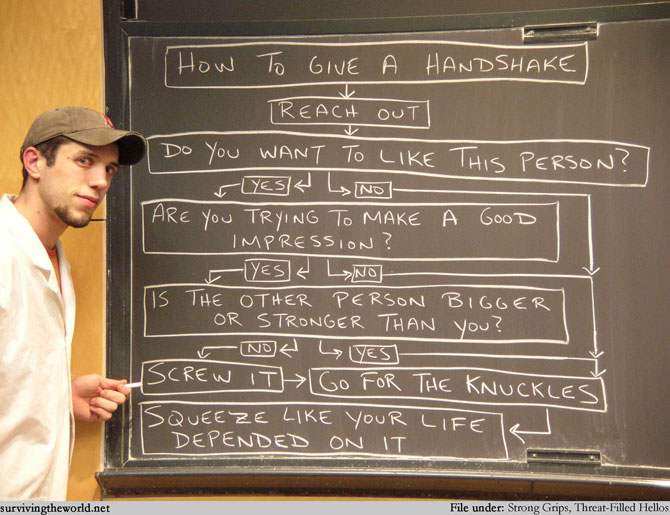 HOW TO GIVE A HANDSHAKE
REACH OUT
DO YOU WANT TO LIKE THIS PERSON?
YES NO
ARE YOU TRYING TO MAKE A GOOD
IMPRESSION?
YES NO
IS THE OTHER PERSON BIGGER
OR STRONGER THAN YOU?
NO YES
SCREW IT GO FOR THE KNUCKLES
SQUEEZE LIKE YOUR LIFE
DEPENDED ON IT
survivingtheworld.net File under: Strong Grips, Threat-Filled Hellos